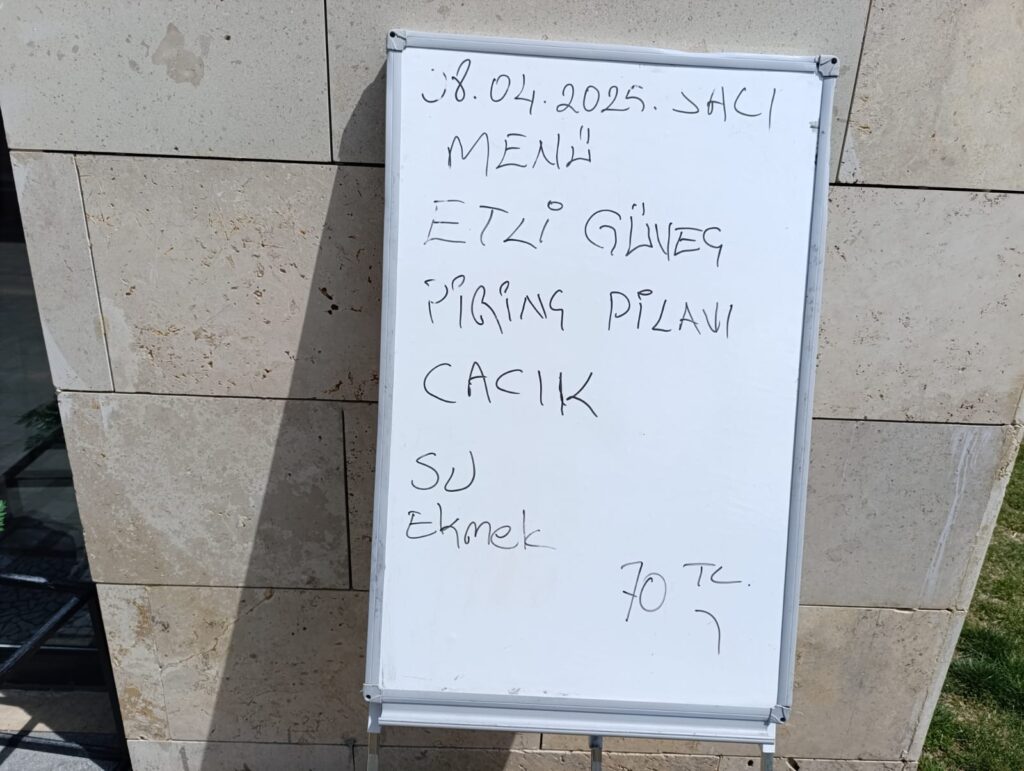 08.04.2025. SALI
MENÜ
ETLİ GÜVEÇ
PİRİNÇ PİLAVI
CACIK
SU
Ekmek
70 TL.